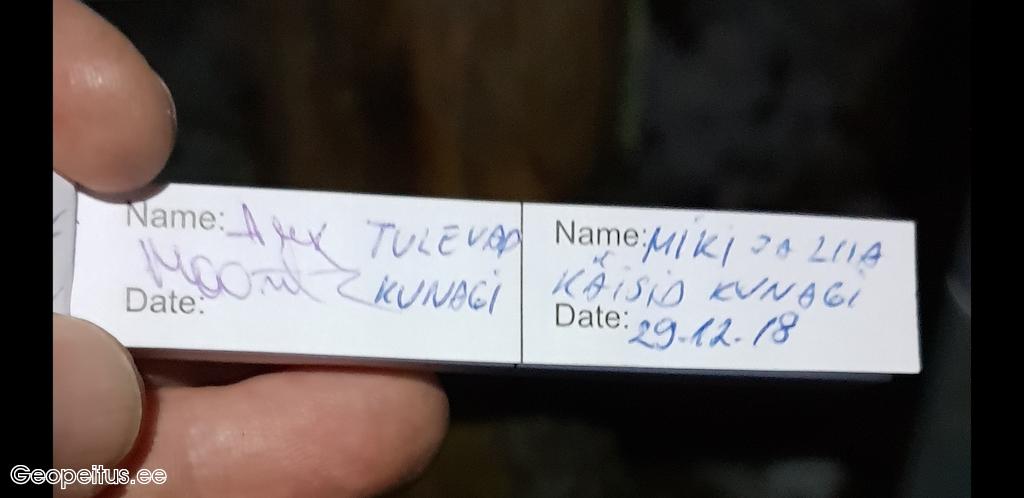 Name: Alex TULEVAD
KUNAGI
Date:
Name: MIKI JA LIIA
KÄISID KUNAGI
Date: 29.12.18
Geopeitus.ee